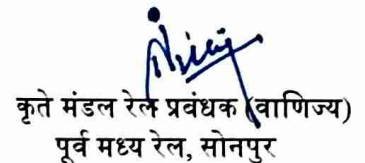 कृते मंडल रेल प्रबंधक (वाणिज्य)
पूर्व मध्य रेल, सोनपुर